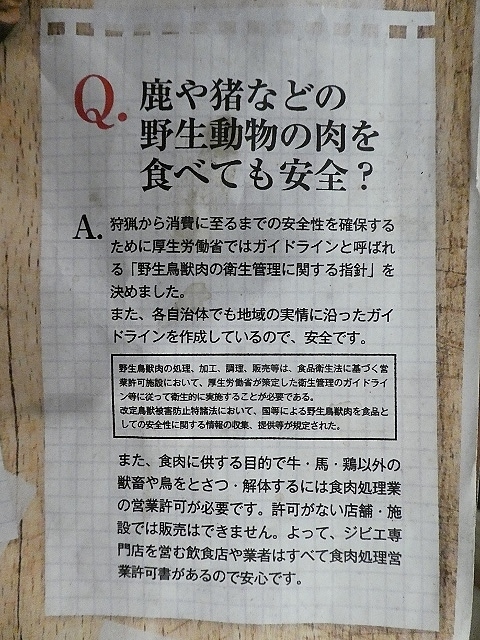 Q. 鹿や猪などの
野生動物の肉を
食べても安全？
A. 狩猟から消費に至るまでの安全性を確保する
ために厚生労働省ではガイドラインと呼ばれ
る「野生鳥獣肉の衛生管理に関する指針」を
決めました。
また、各自治体でも地域の実情に沿ったガイ
ドラインを作成しているので、安全です。
野生鳥獣肉の処理、加工、調理、販売等は、食品衛生法に基づく営
業許可施設において、厚生労働省が策定した衛生管理のガイドライ
ン等に従って衛生的に実施することが必要である。
改定鳥獣被害防止特措法において、国等による野生鳥獣肉を食品と
しての安全性に関する情報の収集、提供等が規定された。
また、食肉に供する目的で牛・馬・鶏以外の
獣畜や鳥をとさつ・解体するには食肉処理業
の営業許可が必要です。許可がない店舗・施
設では販売はできません。よって、ジビエ専
門店を営む飲食店や業者はすべて食肉処理営
業許可書があるので安心です。